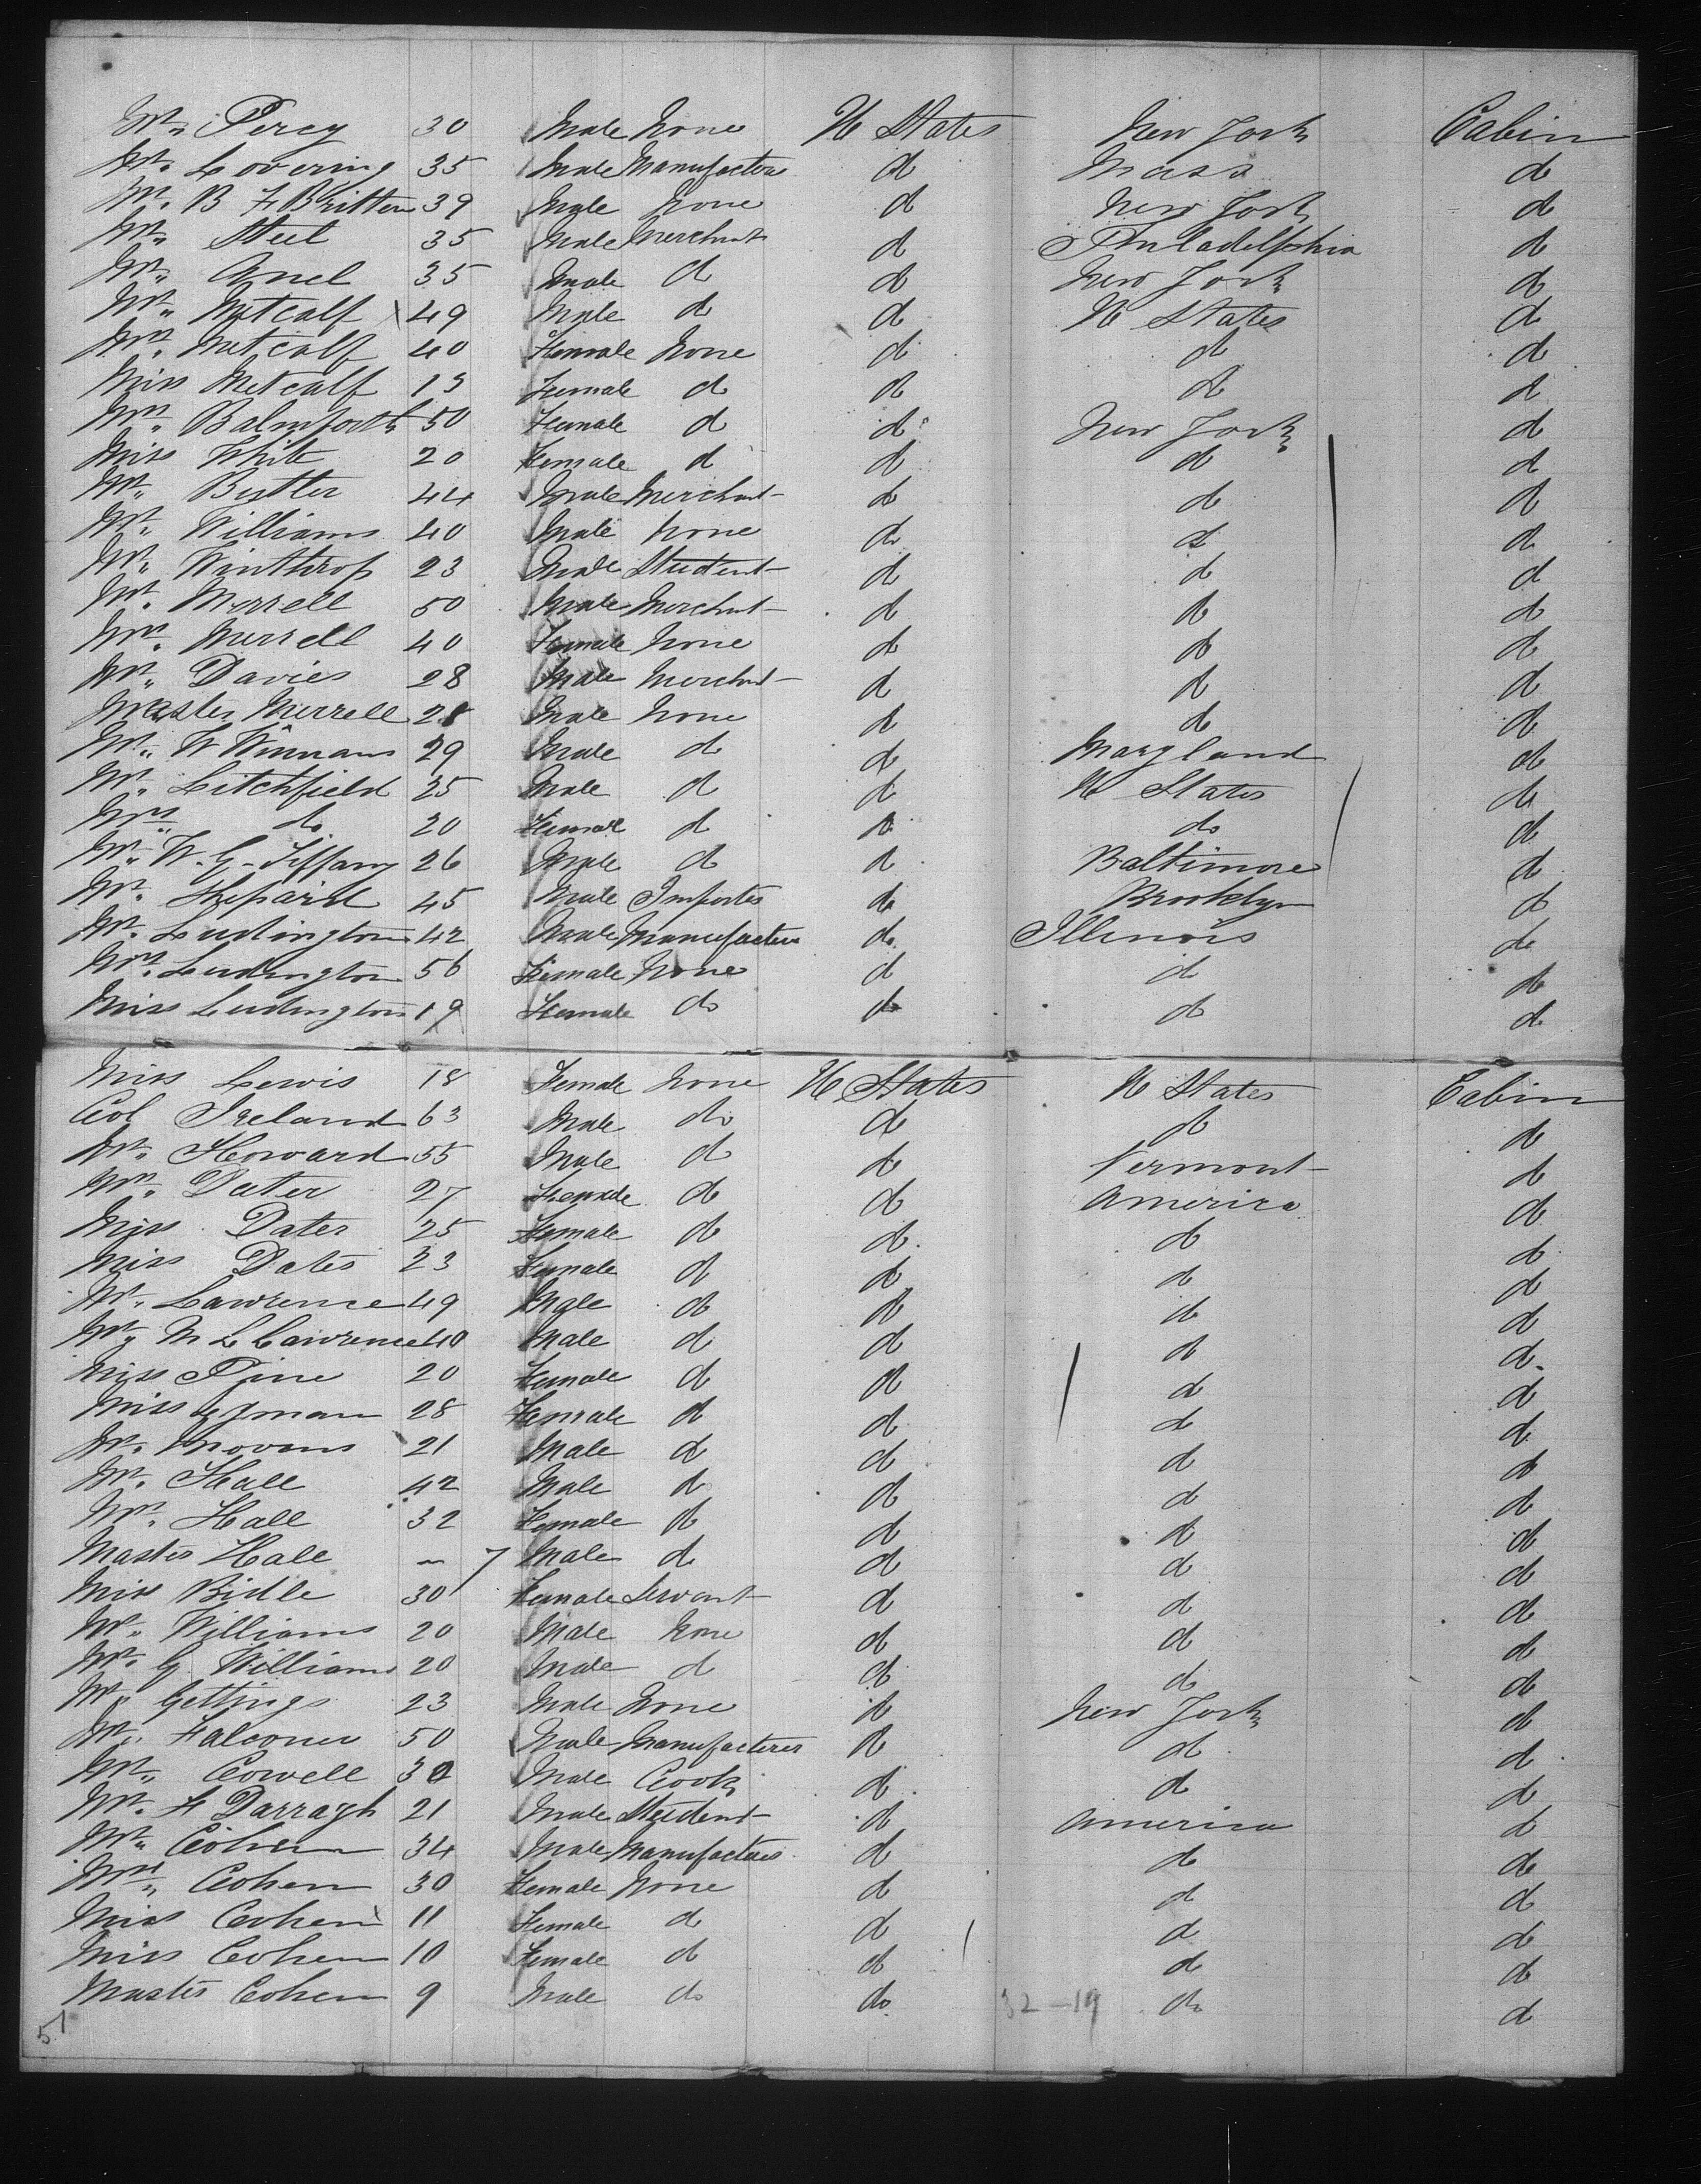 Mr. Percy 30 Male None U States New York Cabin
Mr. Lovering 35 Male Manufacturer do Mass do
Mr. B F Britton 39 Male None do New York do
Mr. Steel 35 Male Merchant do Philadelphia do
Mr. 35 Male do do New York do
Mr. Metcalf 49 Male do do U States do
Mrs. Metcalf 40 Female None do do do
Miss Metcalf 13 Female do do do do
Mrs. Balmforth 50 Female do do New York do
Miss White 20 Female do do do do
Mr. Butler 44 Male Merchant do do do
Mr. Williams 40 Male None do do do
Mr. Winthrop 23 Male Student do do do
Mr. Merrell 50 Male Merchant do do do
Mrs. Merrell 40 Female None do do do
Mr. Davies 28 Male Merchant do do do
Master Merrell Male None do do do
Mr. W Winnans 29 Male do do Maryland do
Mr. Litchfield 25 Male do do U States do
Mrs. do 20 Female do do do do
Mr. W. G. Tiffany 26 Male do do Baltimore do
Mr. Shepaird 45 Male Importer do Brooklyn do
Mr. Ludington 42 Male Manufacturer do Illinois do
Mrs. Ludington 56 Female None do do do
Miss Ludington 19 Female do do do do
Miss Lewis 18 Female None U States U States Cabin
Col Ireland 63 Male do do do do
Mr. Howard 55 Male do do Vermont do
Mrs. Dater 27 Female do do America do
Miss Dater 25 Female do do do do
Miss Dater 23 Female do do do do
Mr. Lawrence 49 Male do do do do
Mr. M L Lawrence 40 Male do do do do
Miss Pine 20 Female do do do do
Miss 28 Female do do do do
Mr. 21 Male do do do do
Mr. Hall 42 Male do do do do
Mrs. Hall 32 Female do do do do
Master Hall ~ 7 Male do do do do
Miss Bidle 30 Female Servant do do do
Mr. Williams 20 Male None do do do
Mr. G Williams 20 Male do do do do
Mr. Gettings 23 Male None do New York do
Mr. Falconer 50 Male Manufacturer do do do
Mr. Cowell Male Cook do do do
Mr. H Darragh 21 Male Student do America do
Mr. Cohen 34 Male Manufacturer do do do
Mrs. Cohen 30 Female None do do do
Miss Cohen 11 Female do do do do
Miss Cohen 10 Female do do do do
Master Cohen 9 Male do do do do
32-19
51